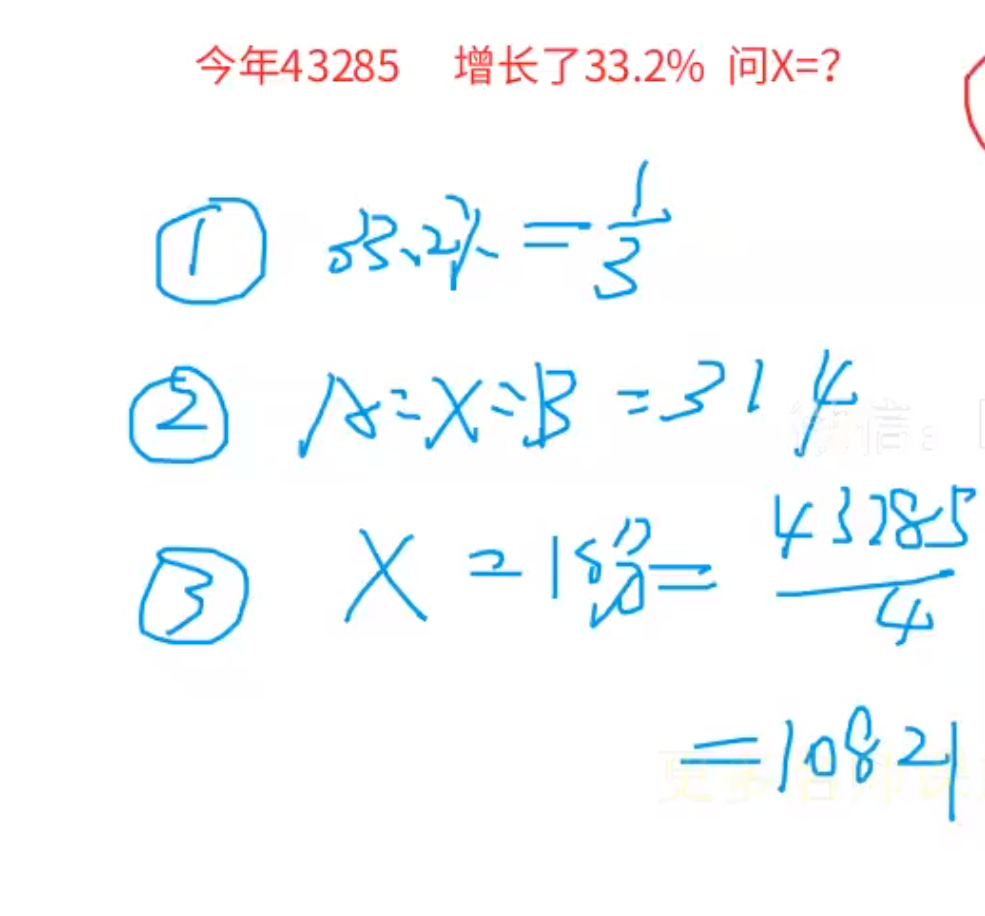 今年43285 增长了33.2% 问X=?
① 33.2% = 1/3
② A=X=B=3 1 4
③ X=1份=43285/4
=10821